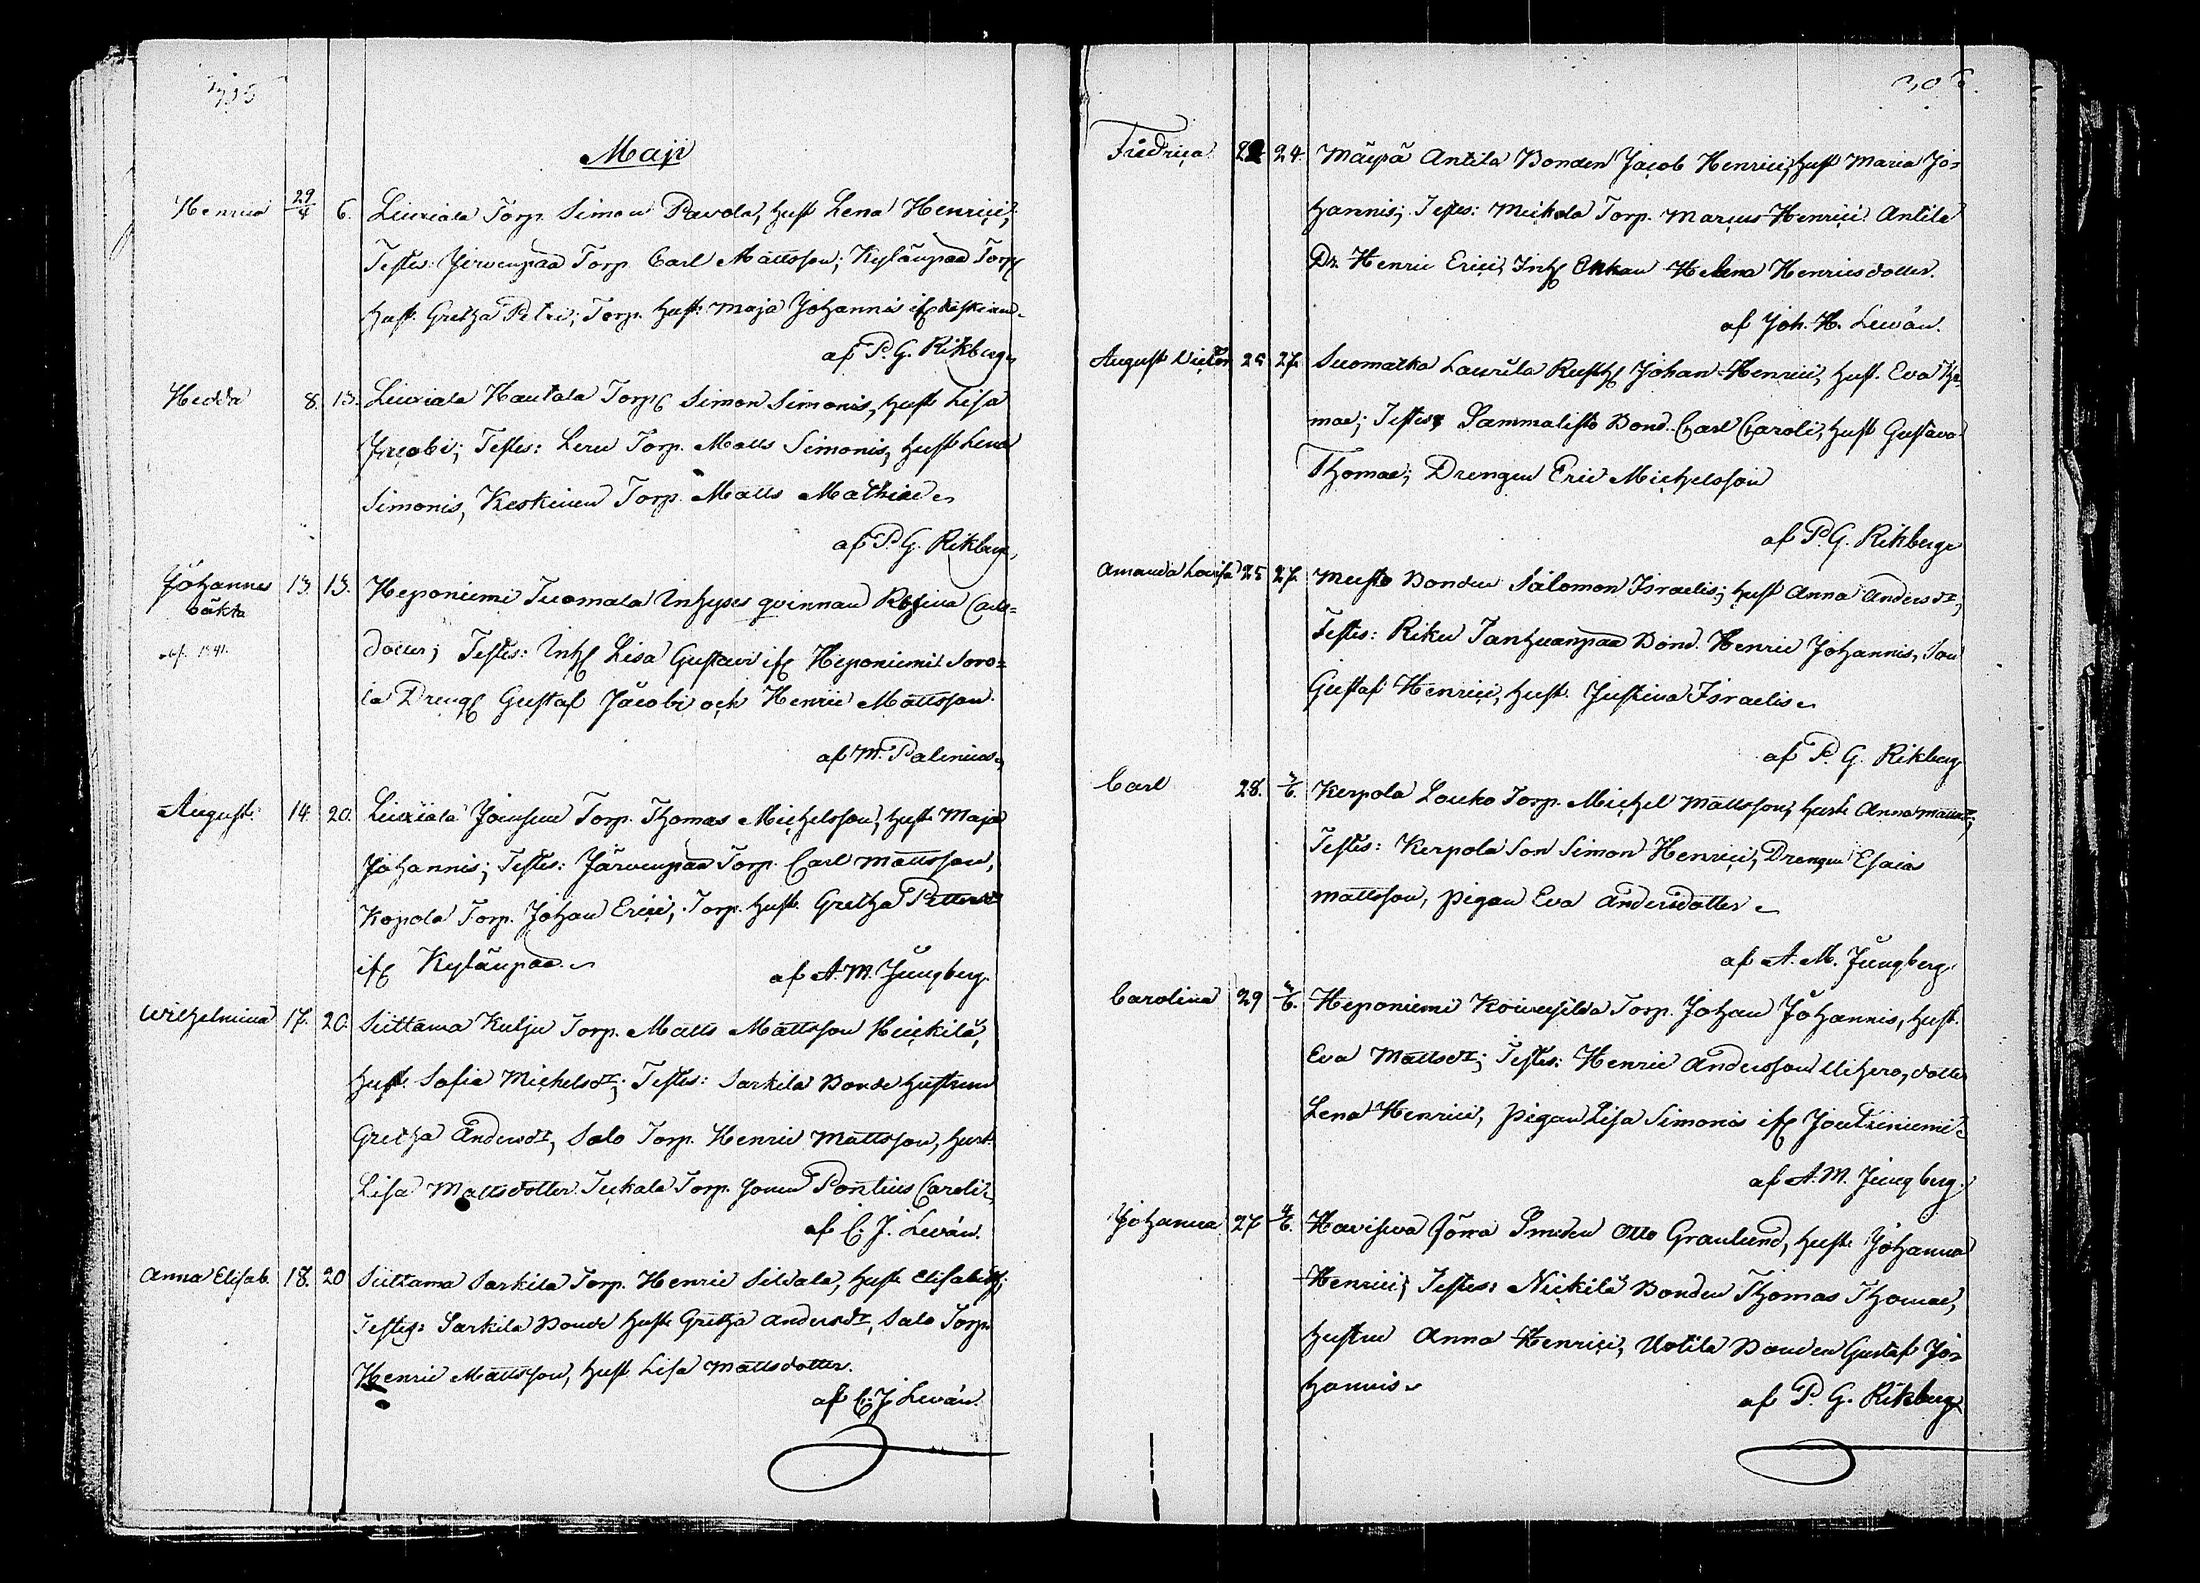 Maji
Henric 29/4 6. Liuxiala Torp. Simon Pavola, Hust Lena Henrici;
Testes: Jervenpää Torp. Carl Mattsson; Kylänpää Torp
Hust. Gretha Petri; Torp. Hust: Maja Johannis
af P. G. Rikberg
Hedda 8. 13. Liuxiala Hautala Torp Simon Simonis, Hust Lisa
Jacobi; Testes: Leru Torp. Matts Simonis, Hust Lena
Simonis, Keskinen Torp. Matts Mathiae
af P. G. Rikberg
Johannes 13. 13. Heponiemi Tuomala Inhyses qvinnan Rosina Carls=
oäkta dotter; Testes: Inh Lisa Gustavi if Heponiemi Soro=
1841. la Dreng Gustaf Jacobi och Henric Mattsson.
af M. Palenius
August 14. 20. Liuxiala Joensuu Torp. Thomas Michelsson, Hust Maja
Johannis; Testes: Järvenpää Torp. Carl Mattsson,
Kopola Torp. Johan Erici, Torp. Hust. Gretha Pettersdr
if Kylänpää. af A. M. Jungberg.
Wilhelmina 17. 20. Siittama Kulju Torp. Matts Mattsson Heickilä,
Hust Sofia Michelsdr; Testes: Sarkila Bonde Hustrun
Gretha Andersdr, Salo Torp. Henric Mattsson, Hust
Lisa Mattsdotter. Tuckala Torp. sonen Pontius Caroli
af C. J. Levän.
Anna Elisab. 18. 20 Siittama Sarkila Torp. Henric Sillala, Hust Elisabeth;
Testes: Sarkila Bonde Hust Gretha Andersdr, Salo Torp.
Henric Mattsson, Hust Lisa Mattsdotter.
af C. J. Levän.
Fredrica 22 24. Mäypä Antila Bonden Jacob Henrici, Hust Maria Jo=
hannis; Testes: Muckola Torp. Marcus Henrici Antila
Dr. Henric Erici, Inh Enkan Helena Henricsdotter.
af Joh. H. Levän.
August Victor 25 27. Suomatka Laurila Rusth Johan Henrici, Hust. Eva Tho
mae; Testes Sammalisto Bond. Carl Caroli, Hust Gustava
Thomae; Drengen Eric Michelsson
af P. G. Rikberg
Amanda Lovisa 25 27. Musto Bonden Salomon Israelis; Hust Anna Andersdr;
Testes: Riku Tanhuanpää Bond. Henric Johannis, Son
Gustaf Henrici, Hust. Justina Israelis
af P. G. Rikberg
Carl 28. 3/6. Kerpola Louko Torp. Michel Mattsson, Hust Anna Mattsdr;
Testes: Kerpola Son Simon Henrici, Drengen Esaias
Mattsson, pigan Eva Andersdotter
af A. M. Jungberg.
Carolina 29 3/6. Heponiemi Koivusilda Torp. Johan Johannis, Hust.
Eva Mattsdr; Testes: Henric Andersson Uihero, dotter
Lena Henrici, pigan Lisa Simonis if Joutziniemi
af A. M. Jungberg.
Johanna 27 4/6. Havisova Jörra Smeden Otto Granlund, Hust Johanna
Henrici; Testes: Nickilä Bonden Thomas Thomae,
Hustru Anna Henrici, Uotila Bonden Gustaf Jo=
hannis af P. G. Rikberg